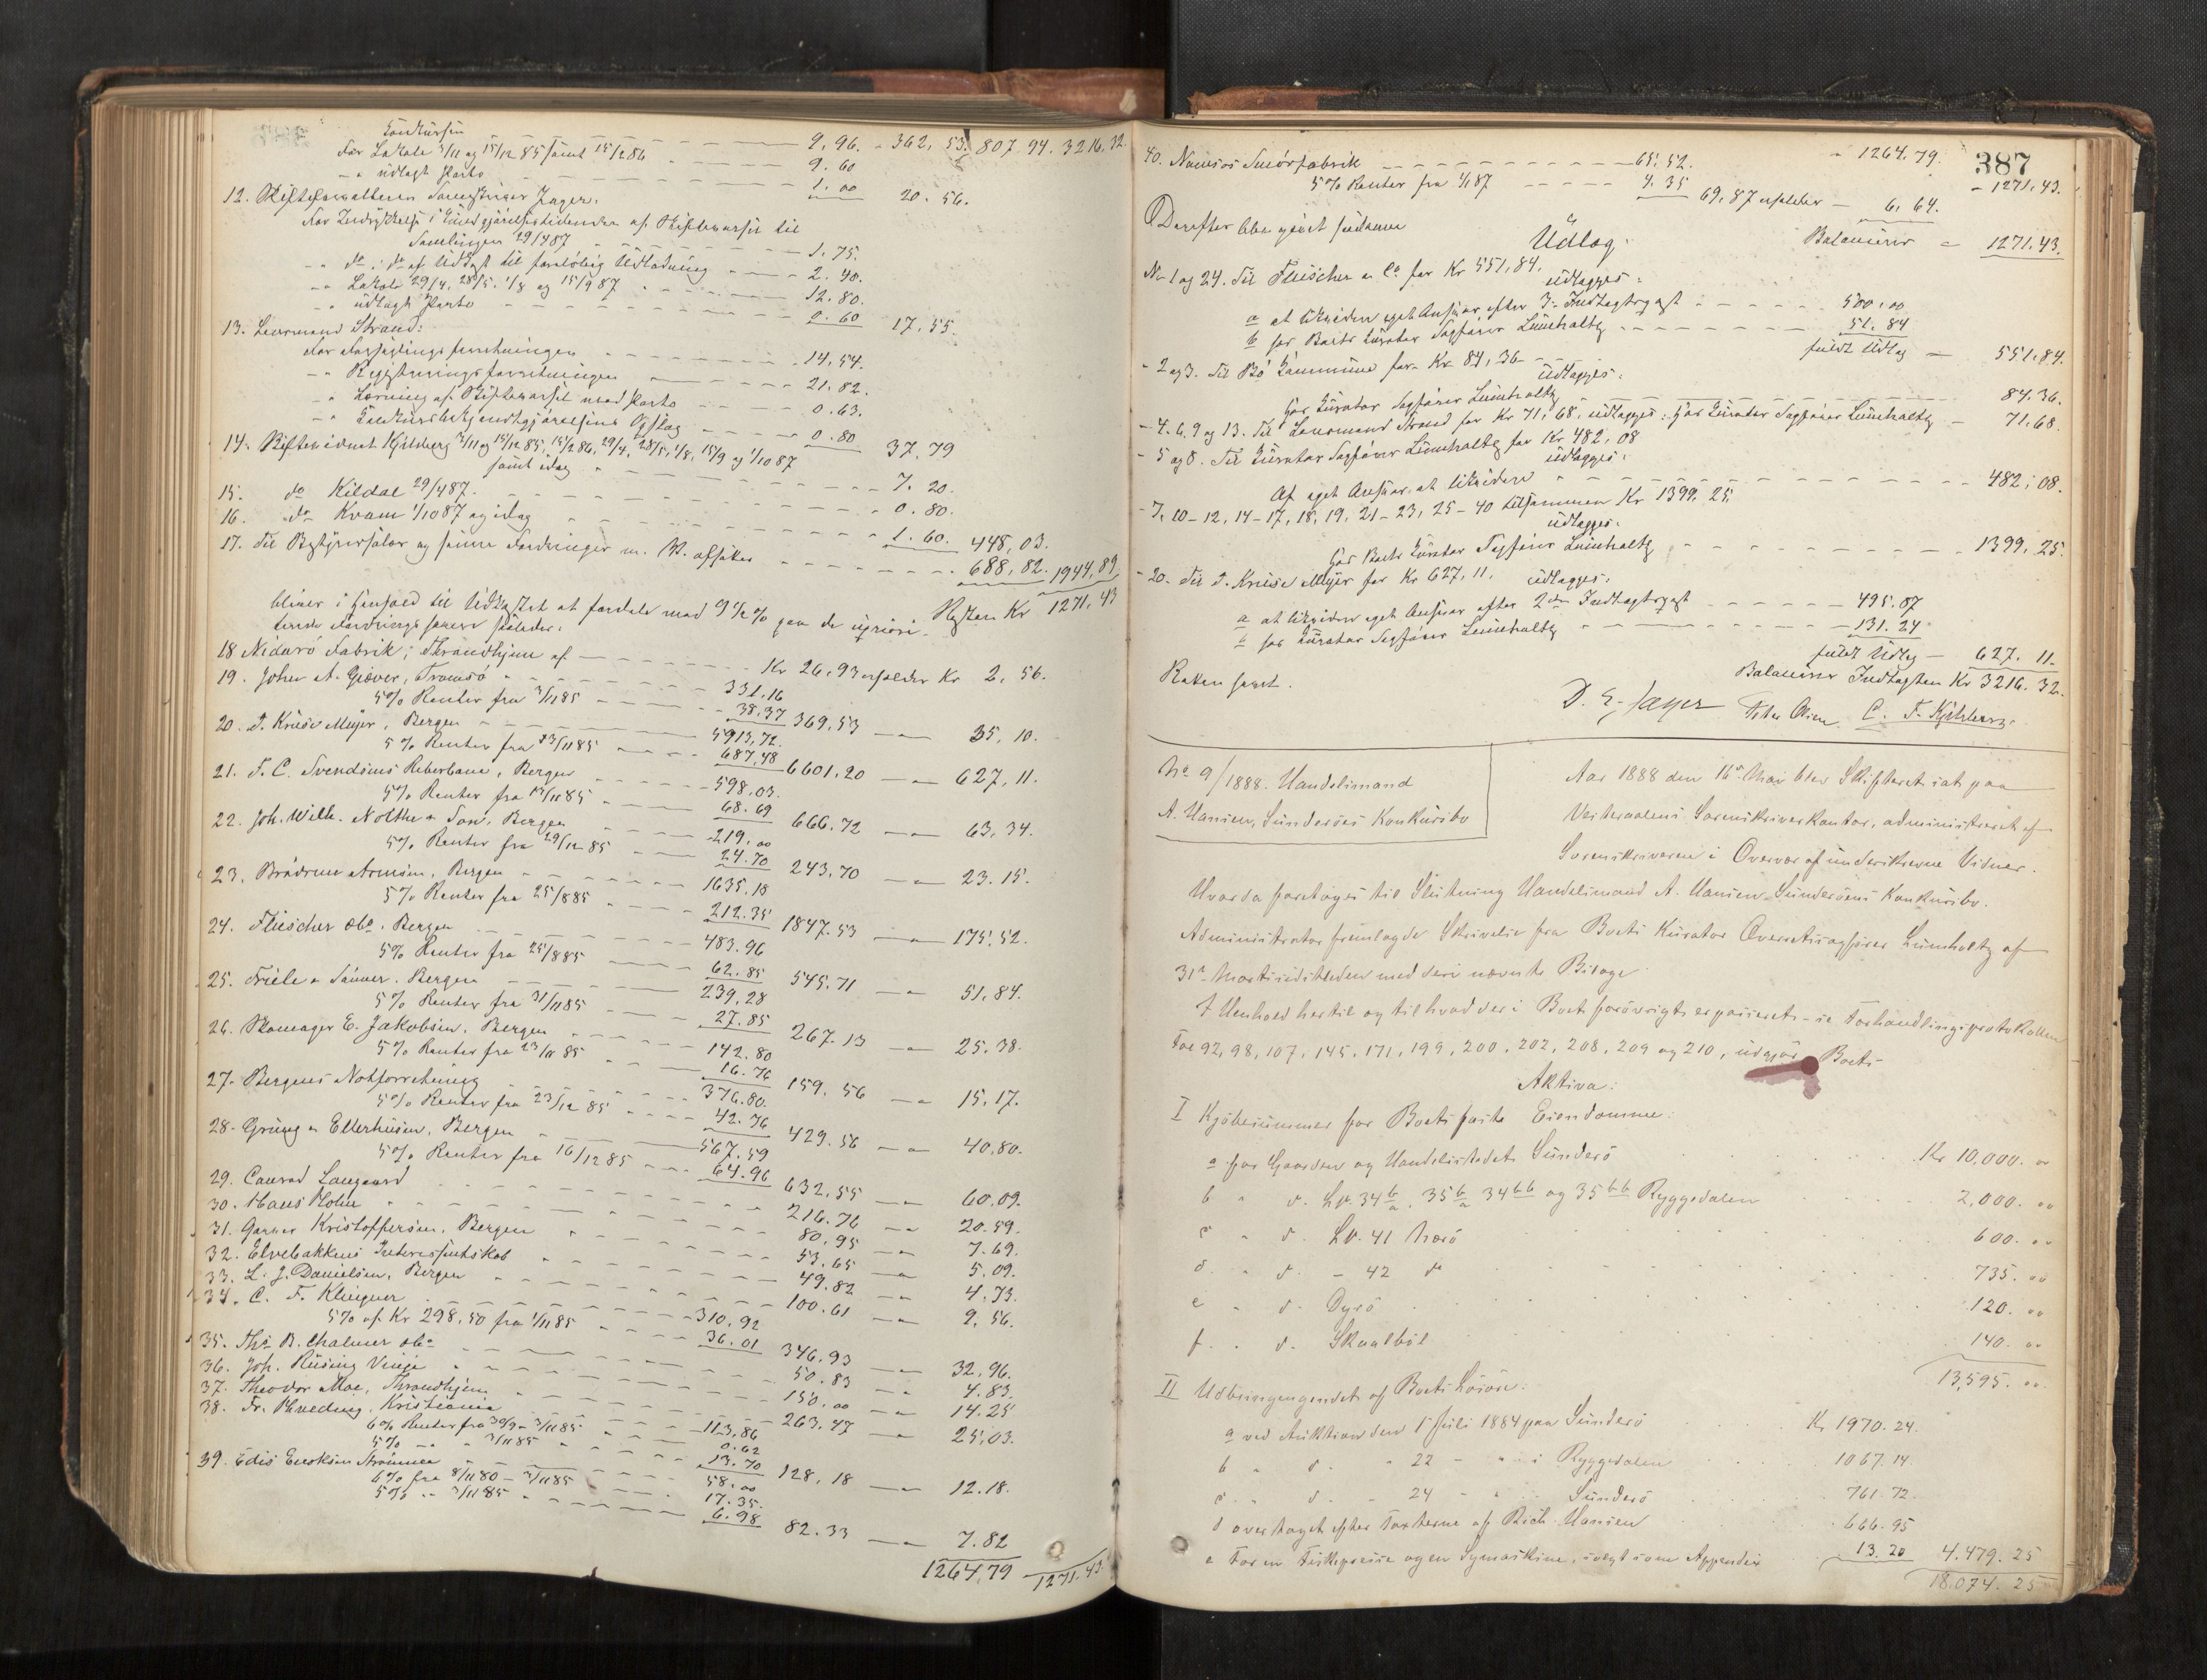 Konkursen 9.96. 362,53. 807.94. 3216,32.
for Lokale 3/11 og 15/12 85 samt 15/2 86 9.60
-"- udlagt Porto 1.00 20.56.
12. Skifteforvalteren Sorenskriver Jager:
for Indrykkelse i Kundgjørelsestidenden af Skiftevarsel til
Samlingen 29/4 87 1.75.
-"- do. i do af Udkast til foreløbig Udlodning 2.40.
-"- Lokale 29/4, 28/5, 1/8 og 15/9 87 12.80.
" udlagt Porto 0.60 17.55.
13. Lensmand Strand:
for Forseglingsforretningen 14,54.
-"- Registreringsforretningen 21.82.
-"- Læsning af Skiftevarsel med Porto 0.63.
-"- Konkursbekjendtgjørelsens Opslag 0.80 37.79
14. Skiftevidnet Kjilberg 3/11 og 15/12 85, 15/2 86, 29/4, 28/5, 1/8, 15/9 og 1/10 87
samt idag 7.20.
15. do Kildal 29/4 87. 0.80.
16. do Kvam 1/10 87 og idag 1.60. 448,03.
17. Til Bestyrersalær og senere Fordringer m. V. afsættes 688,82. 1944,89
Resten Kr 1271,43
bliver i Henhold til Udkastet at fordele med 9 1/2 % paa de uprioriterede
Fordringshavere saaledes:
18 Nidarø Fabrik, Throndhjem af Kr 26,93 erholder Kr 2,56.
19. Johan A. Giæver, Tromsø 331.16
5% Renter fra 3/11 85 38.37 369,53 35,10.
20. D. Kruse Meyer, Bergen 5913,72.
5% Renter fra 23/11 85 687,48 6601,20 627,11.
21. F. C. Svendsens Reberbane, Bergen 598.03.
5% Renter fra 15/11 85 68.69 666.72 63,34.
22. Joh. Wilh. Nolthe & Søn, Bergen 219,00
5% Renter fra 29/12 85 24.70 243,70 23.15.
23. Brødrene Arnesen, Bergen 1635.18
5% Renter fra 25/8 85 212.35 1847.53 175,52.
24. Fleischer & Co, Bergen 483.96
5% Renter fra 25/8 85 62.85 545.71 51,84.
25. Friele & Sønner, Bergen 239,28
5% Renter fra 31/11 85 27.85 267.13 25.38.
26. Skomager E. Jakobsen, Bergen 142.80
5% Renter fra 23/11 85 16.76 159.56 15,17.
27. Bergens Notforretning 376.80.
5% Renter fra 23/12 85 42.76 429.56 40,80.
28. Grung & Ellerhusen, Bergen 567.59
5% Renter fra 16/12 85 64.96 632,55 60.09.
29. Conrad Langaard 216.76 20.59.
30. Hans Holm 80,95 7.69.
31. Garner Kristoffersen, Bergen 53,65 5,09.
32. Elvebakkens Interessentskab 49.82 4.73.
33. L. J. Danielsen, Bergen 100.61 9,56.
34. C. F. Klingner 310,92
5% af Kr 298,50 fra 1/11 85 36.01 346.93 32,96.
35. Ths B. Chalmer & Co 50.83 4.83.
36. Joh. Rusing Vinje 150.00 14.25
37. Theodor Moe, Throndhjem 263.47 25,03.
38. Fr. Plueding, Kristiania 113,86
6% Renter fra 30/9 - 3/11 85 0.62
5% -"- " 3/11 85 13.70 128,18 12.18.
39. Edis Enoksen Strømmen 58.00
6% fra 8/11 80 - 3/11 85 17.35.
5% -"- 3/11 85 6.98 82.33 7.82
1264,79 1271,43.
387
40. Namsos Smørfabrik 65,52. " 1264.79. 1271,43.
5% Renter fra 1/1 87 4.35 69,87 erholder 6,64.
Balancerer 1271,43.
Derefter blev gjort saadanne
Udlæg:
No 1 og 24. Til Fleischer & Co for Kr 551,84.
udlægges:
a at likvidere eget Ansvar efter 3. Indtægtspost 500,00
b hos Boets Kurator Sagfører Lumholtz 51.84
fuldt Udlæg 551,84.
- 2 og 3. Til Bø Kommune for Kr 84,36
udlægges:
hos Kurator Sagfører Lumholtz 84.36.
- 4. 6. 9 og 13. Til Lensmand Strand for Kr 71,68, udlægges: hos Kurator Sagfører Lumholtz 71,68.
- 5 og 8. Til Kurator Sagfører Lumholtz for Kr 482,08
udlægges:
Af eget Ansvar at likvidere 482,08.
- 7, 10-12, 14-17, 18, 19, 21-23, 25-40 tilsammen Kr 1399.25
udlægges:
hos Boets Kurator Sagfører Lumholtz 1399,25.
- 20. Til D. Kruse Meyer for Kr 627,11. udlægges:
a at likvidere eget Ansvar efter 2den Indtægtspost 495.87
b hos Kurator Sagfører Lumholtz 131.24
fuldt Udlæg 627.11.
Balancerer Indtægten Kr 3216.32.
Retten hævet.
D. E. Jager Peter Olsen C. F. Kjilberg.
No 9/1888. Handelsmand
A. Hansen, Sunderøes Konkursbo
Aar 1888 den 16de Mai blev Skifteret sat paa
Vesteraalens Sorenskriverkontor, administreret af
Sorenskriveren i Overvær af underskrevne Vidner.
Hvorda foretoges til Slutning Handelsmand A. Hansen Sunderøens Konkursbo.
Administrator fremlagde Skrivelse fra Boets Kurator Overretssagfører Lumholtz af
31te Marts sidstleden med deri nævnte Bilage
I Henhold hertil og til hvad der i Boet forøvrigt er passeret - se Forhandlingsprotokollen
Foe 92, 98, 107, 145, 171, 199, 200, 202, 208, 209 og 210, udgjør Boets
Aktiva:
I Kjøbesummer for Boets faste Eiendomme:
a for Gaarden og Handelsstedet Sunderø Kr 10,000.00
b " d. Lb. 34 b/a, 35 b/a 34 bb og 35 bb Ryggedalen 2,000.00
c " d. Lb. 41 Næsø 600.00
d. " d. - 42 do 735.00
e " d. Dyrø 120.00
f. " d. Skaalbøl 140.00
13,595.00.
II Udbringengendet af Boets Løsøre:
a ved Auktion den 15 Juli 1884 paa Sunderø Kr 1970.24.
b " d. " 22 - " i Ryggedalen 1067.14.
c " d. " 24 " " Sunderø 761.72.
d overtaget efter Taxterne af Rich. Hansen 666.95
e For en Fiskepresse og en Symaskine, solgt som Appendix 13.20 4.479.25
18.074.25